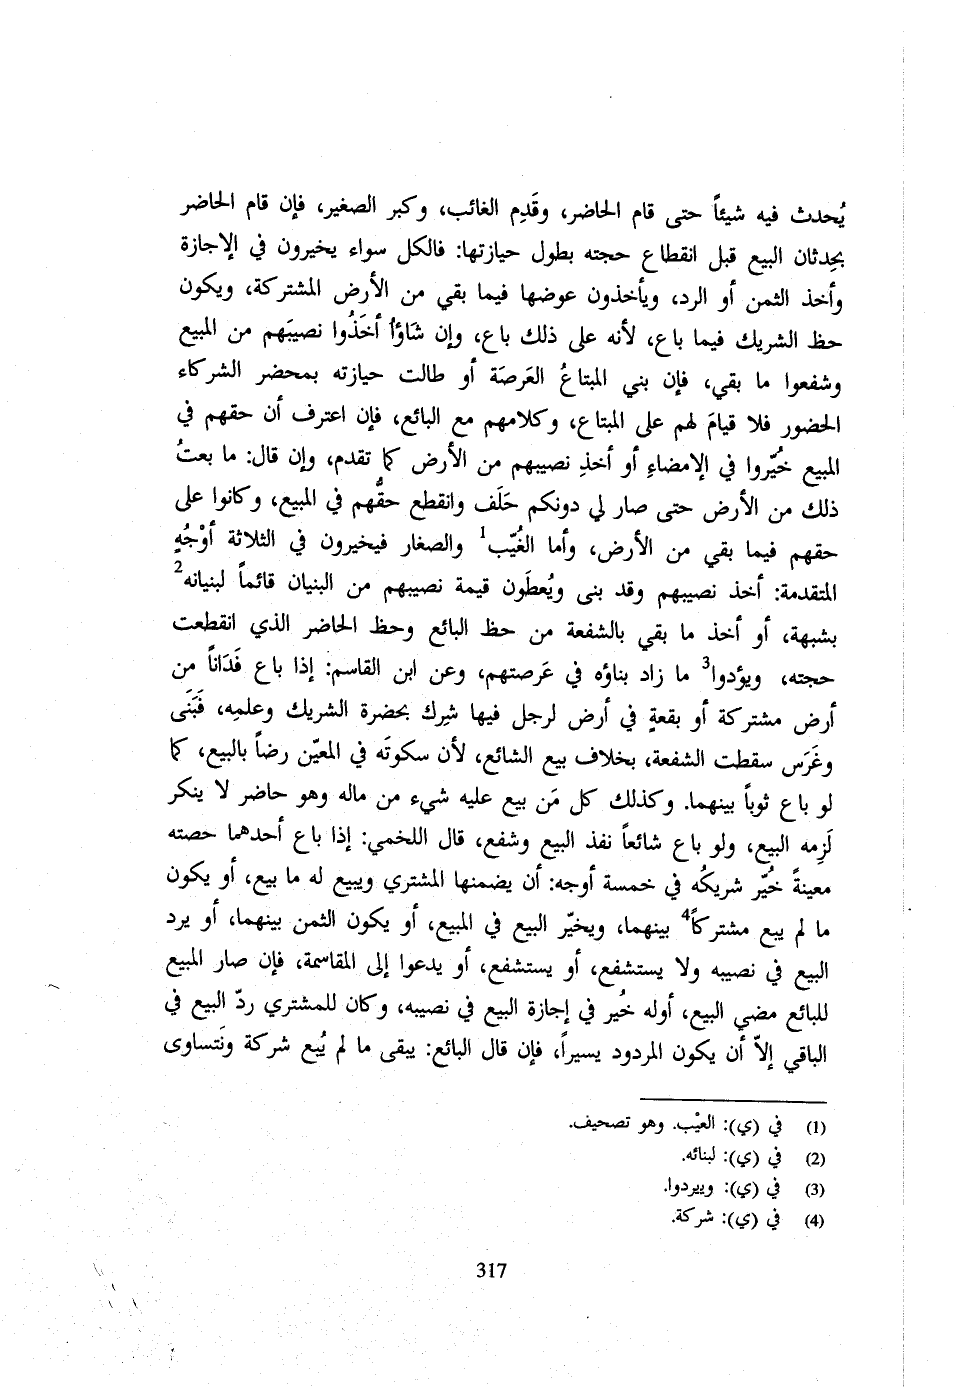 يُحدث فيه شيئاً حتى قام الحاضر، وقَدِم الغائب، وكبر الصغير، فإن قام الحاضر
بحِدثان البيع قبل انقطاع حجته بطول حيازتها: فالكل سواء يخيرون في الإجازة
وأخذ الثمن أو الرد، ويأخذون عوضها فيما بقي من الأرض المشتركة، ويكون
حظ الشريك فيما باع، لأنه على ذلك باع، وإن شَاؤُا أخَذُوا نصيبَهم من المبيع
وشفعوا ما بقي، فإن بني المبتاعُ العَرصَة أو طالت حيازته بمحضر الشركاء
الحضور فلا قيامَ لهم على المبتاع، وكلامهم مع البائع، فإن اعترف أن حقهم في
المبيع خُيّروا في الإمضاءِ أو أخذِ نصيبهم من الأرض كما تقدم، وإن قال: ما بعتُ
ذلك من الأرض حتى صار لي دونكم حَلَف وانقطع حقُّهم في المبيع، وكانوا على
حقهم فيما بقي من الأرض، وأما الغُيّب1 والصغار فيخيرون في الثلاثة أوْجُهٍ
المتقدمة: أخذ نصيبهم وقد بنى ويُعطَون قيمة نصيبهم من البنيان قائماً لبنيانه2
بشبهة، أو أخذ ما بقي بالشفعة من حظ البائع وحظ الحاضر الذي انقطعت
حجته، ويؤدوا3 ما زاد بناؤه في عَرصتهم، وعن ابن القاسم: إذا باع فَدَاناً من
أرض مشتركة أو بقعةٍ في أرض لرجل فيها شِرك بحضرة الشريك وعلمِه، فَبَنَى
وغَرَس سقطت الشفعة، بخلاف بيع الشائع، لأن سكوتَه في المعيّن رضاً بالبيع، كما
لو باع ثوباً بينهما. وكذلك كل مَن بيع عليه شيء من ماله وهو حاضر لا ينكر
لَزِمه البيع، ولو باع شائعاً نفذ البيع وشفع، قال اللخمي: إذا باع أحدهما حصته
معينةً خُيّر شريكُه في خمسة أوجه: أن يضمنها المشتري ويبيع له ما بيع، أو يكون
ما لم يبع مشتركاً4 بينهما، ويخيّر البيع في المبيع، أو يكون الثمن بينهما، أو يرد
البيع في نصيبه ولا يستشفع، أو يستشفع، أو يدعوا إلى المقاسمة، فإن صار المبيع
للبائع مضي البيع، أوله خُير في إجازة البيع في نصيبه، وكان للمشتري ردّ البيع في
الباقي إلاّ أن يكون المردود يسيراً، فإن قال البائع: يبقى ما لم يُبع شركة ونَتساوى
(1) في (ي): العيْب. وهو تصحيف.
(2) في (ي): لبنائه.
(3) في (ي): وييردوا.
(4) في (ي): شركة.
317